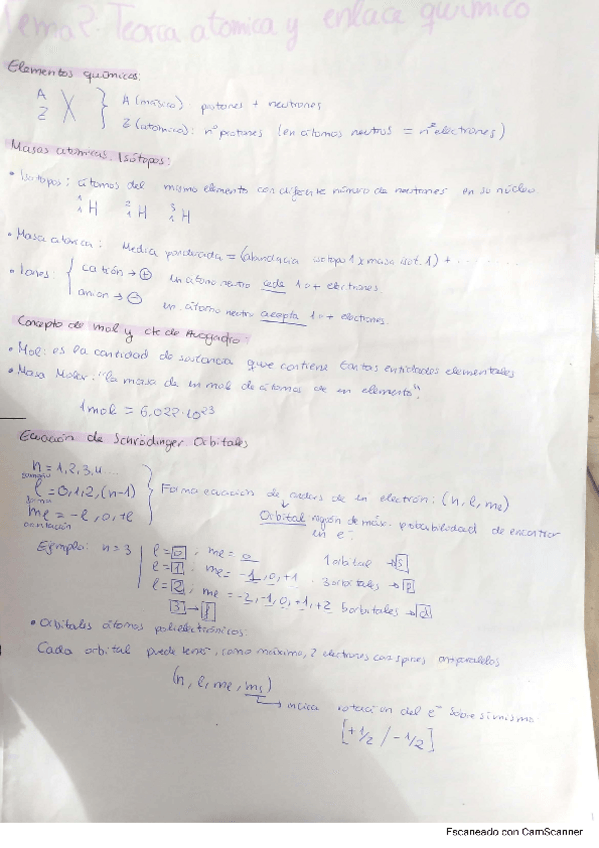 Tema 2. Teoría atómica y enlace químico
Elementos químicos:
A
Z X } A (másico) protones + neutrones
Z (atómico): nº protones (en átomos neutros = nº electrones)
Masas atómicas. Isótopos:
• Isótopos: átomos del mismo elemento con diferente número de neutrones en su núcleo
1 1 H 2 1 H 3 1 H
• Masa atómica: Media ponderada = (abundancia isotopo 1 x masa isot. 1) + ........
• Iones: { catión → ⊕ un átomo neutro cede 1 o + electrones
anion → ⊖ un átomo neutro acepta 1 o + electrones.
Concepto de mol y cte de Avogadro:
• Mol: es la cantidad de sustancia que contiene tantas entidades elementales
• Masa Molar: "la masa de un mol de átomos de un elemento".
1 mol = 6,022·10^23
Ecuación de Schrödinger. Orbitales
n = 1,2,3,4...
l = 0,1,2,(n-1) } Forma ecuación de ondas de un electrón: (n, l, ml)
forma
ml = -l, 0, +l Orbital región de máx. probabilidad de encontrar
orientación un e-
Ejemplo: n = 3 | l = 0 ; ml = 0 1 orbital → s
l = 1 ; ml = -1, 0, +1 3 orbitales → p
l = 2 ; ml = -2, -1, 0, +1, +2 5 orbitales → d
3 → f
• Orbitales átomos polielectrónicos:
Cada orbital puede tener, como máximo, 2 electrones con spines antiparalelos
(n, l, ml, ms)
→ indica rotación del e- sobre si mismo
[+1/2 / -1/2]
1
Escaneado con CamScanner